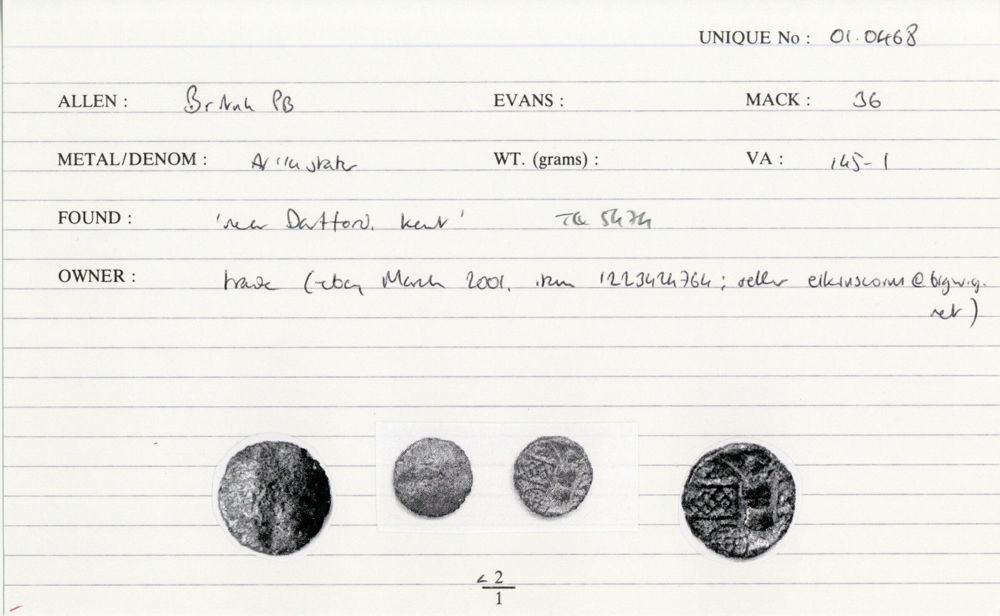 UNIQUE No : 01.0468
ALLEN : British PB EVANS : MACK : 36
METAL/DENOM : 1/4 stater WT. (grams) : VA : 145-1
FOUND : 'near Dartford, Kent' TQ 5474
OWNER : trade (ebay March 2001, item 1223424764; seller
net)
2
1